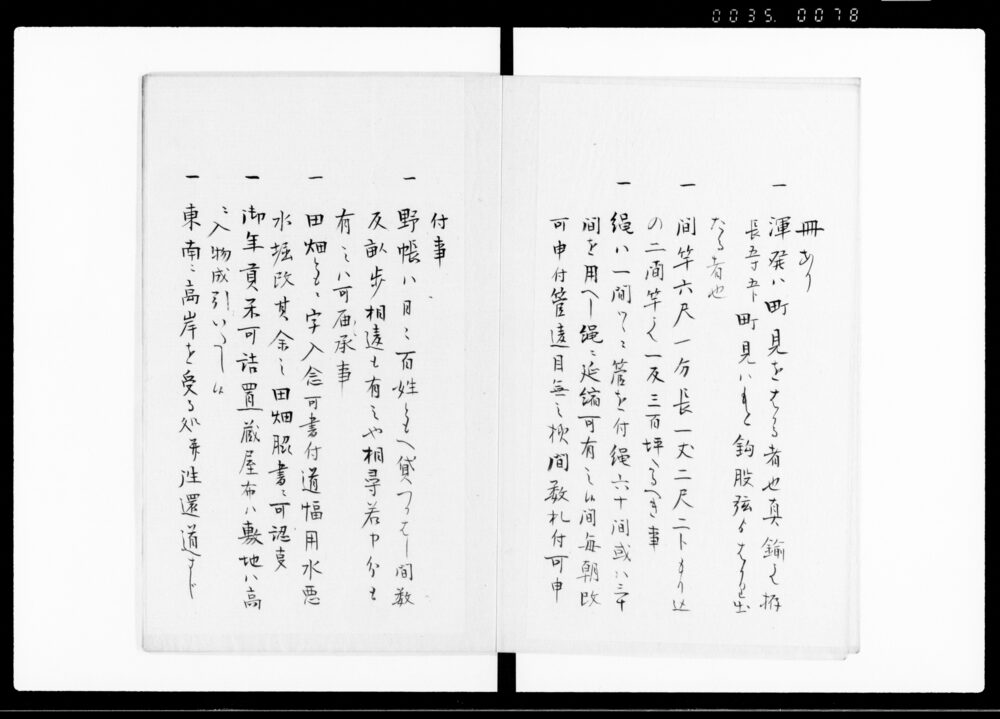 0035. 0078
冊あり
一 渾発ハ町見をはる者也真鍮ニ拵
長五寸五卜町見ハもと鈎股弦よりはり出
たる者也
一 間竿六尺一分長一丈二尺二卜もり込
の二間竿之一反三百坪たるへき事
一 縄ハ一間つゝ菅を付縄六十間或ハ三十
間を用へし縄ニ延縮可有之候間毎朝改
可申付管違目無之様間数札付可申
付事
一 野帳ハ日ニ百姓ともへ貸つかはし間数
反畝歩相違も有之や相尋若申分も
有之ハ可届承事
一 田畑とも字入念可書付道幅用水悪
水堀改其余之田畑脇書ニ可認真
一 御年貢米可詰置蔵屋布ハ敷地ハ高
ニ入物成引いたし候
一 東南ニ高岸を受る処并往還道すじ